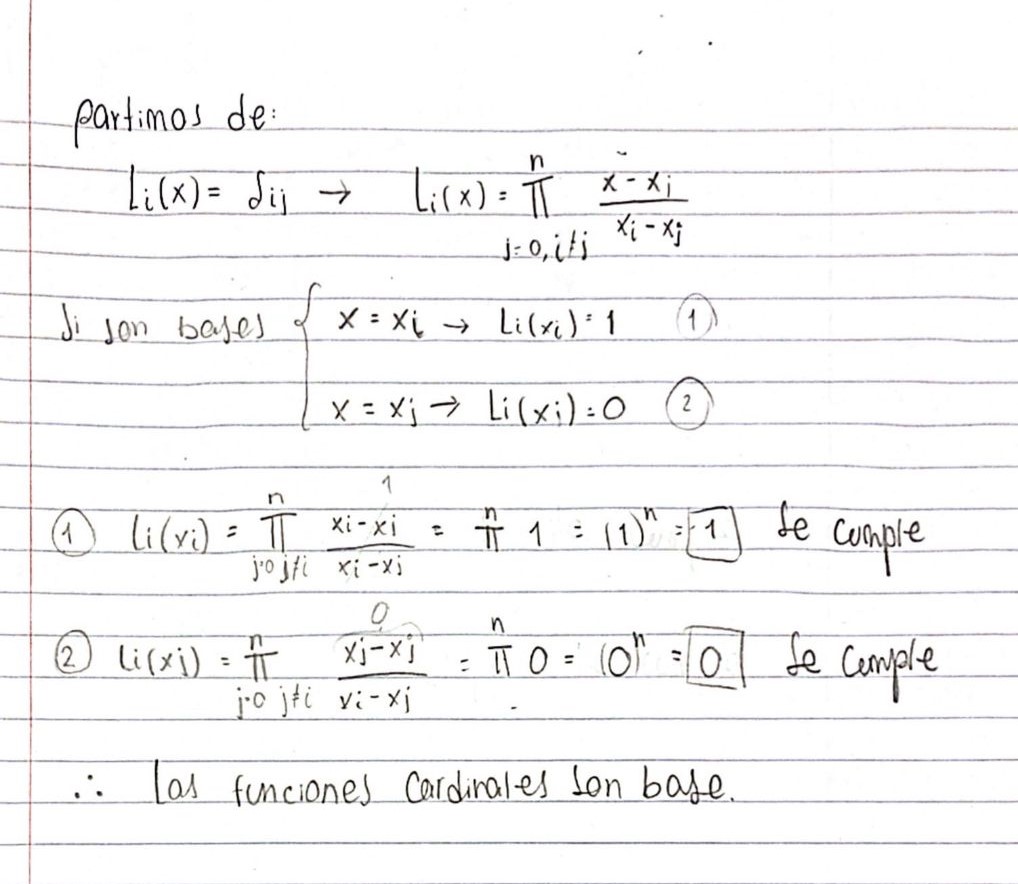 partimos de:
Li(x) = δij → Li(x) = n∏j=0, i≠j (x - xj)/(xi - xj)
Si son bases { x = xi → Li(xi) = 1 ①
x = xj → Li(xj) = 0 ②
① Li(xi) = n∏j=0 j≠i (xi - xj)/(xi - xj) 1 = n∏ 1 = (1)^n = 1 Se cumple
② Li(xj) = n∏j=0 j≠i (xj - xj)/(xi - xj) 0 = n∏ 0 = (0)^n = 0 Se cumple
∴ Las funciones cardinales son base.